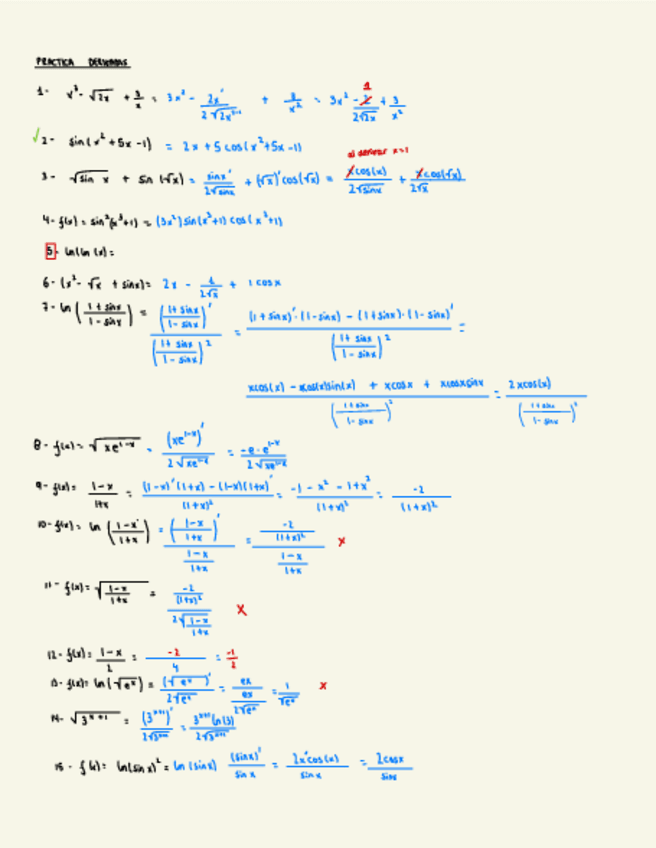 PRACTICA DERIVADAS
1- x³ - √2x + 3/x = 3x² - 2x'/2√2x + 3/x² = 3x² - 2/2√2x + 3/x²
2- sin(x² + 5x - 1) = 2x + 5 cos(x² + 5x - 1)
al derivar x=1
3- √sin x + sin(√x) = sinx'/2√sinx + (√x)' cos(√x) = xcos(x)/2√sinx + xcos(√x)/2√x
4- f(x) = sin²(x³+1) = (3x²) sin(x³+1) cos(x³+1)
5- ln(ln(x) =
6- (x² - √x + sinx) = 2x - 1/2√x + 1 cosx
7- ln((1+sinx)/(1-sinx)) = ((1+sinx)/(1-sinx))'/((1+sinx)/(1-sinx))² = ((1+sinx)'·(1-sinx) - (1+sinx)·(1-sinx)')/((1+sinx)/(1-sinx))² =
(xcos(x) - xcos(x)sin(x) + xcosx + xcosxsinx)/((1+sinx)/(1-sinx))² = 2xcos(x)/((1+sinx)/(1-sinx))²
8- f(x) = √xe¹⁻ˣ = (xe¹⁻ˣ)'/2√xe¹⁻ˣ = -e·e¹⁻ˣ/2√xe¹⁻ˣ
9- f(x) = (1-x)/(1+x) = ((1-x)'(1+x) - (1-x)(1+x)')/(1+x)² = (-1 - x² - 1 + x²)/(1+x)² = -2/(1+x)²
10- f(x) = ln((1-x)/(1+x)) = ((1-x)/(1+x))'/((1-x)/(1+x)) = (-2/(1+x)²)/((1-x)/(1+x)) x
11- f(x) = √((1-x)/(1+x)) = (-2/(1+x)²)/(2√((1-x)/(1+x))) x
12- f(x) = (1-x)/2 = -2/4 = -1/2
13- f(x) = ln(√eˣ) = (√eˣ)'/2√eˣ = ex/ex/2√eˣ = 1/√eˣ x
14- √3ˣ⁺¹ = (3ˣ⁺¹)'/2√3ˣ⁺¹ = 3ˣ⁺¹ ln(3)/2√3ˣ⁺¹
15- f(x) = ln(sin x)² = ln(sinx) (sinx)'/sin x = 2x'cos(x)/sin x = 2cosx/sinx